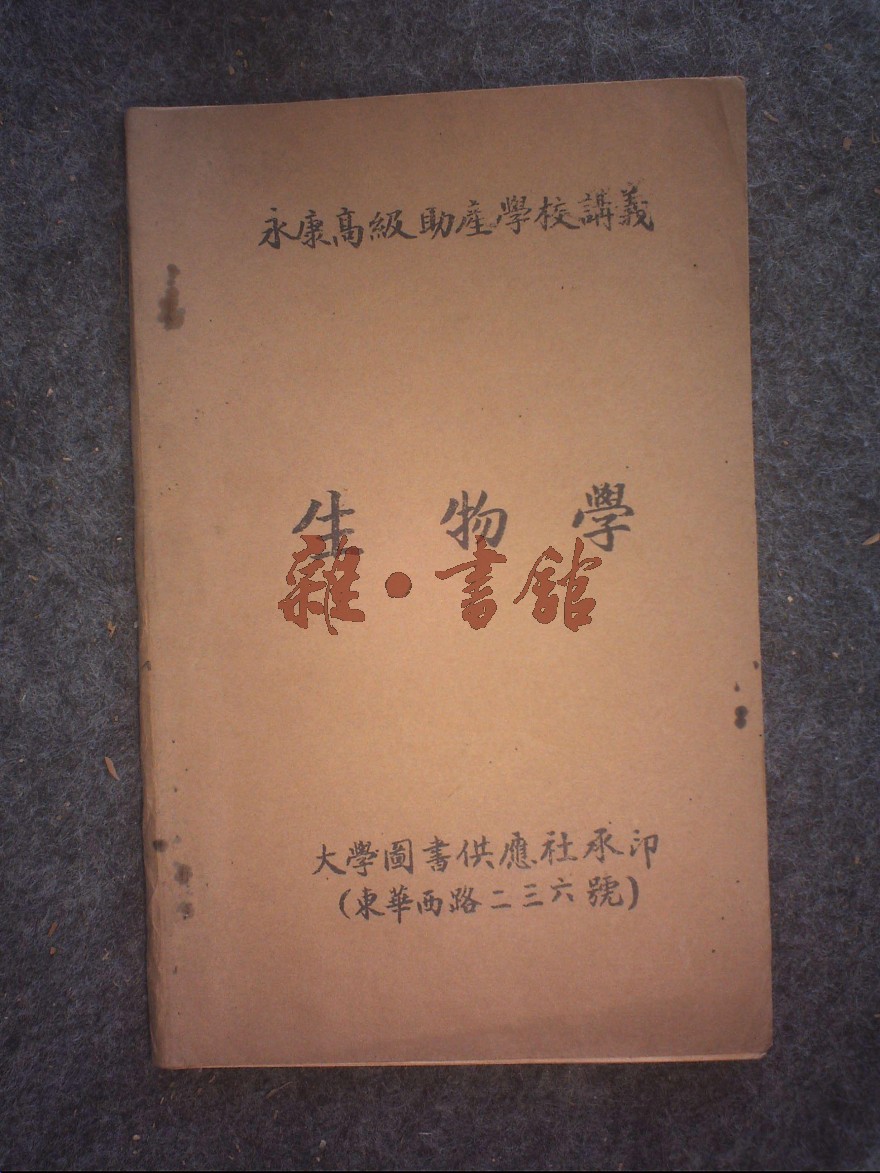 永康高級助產學校講義
生物學
雜·書館
大學圖書供應社承印
(東華西路二三六號)